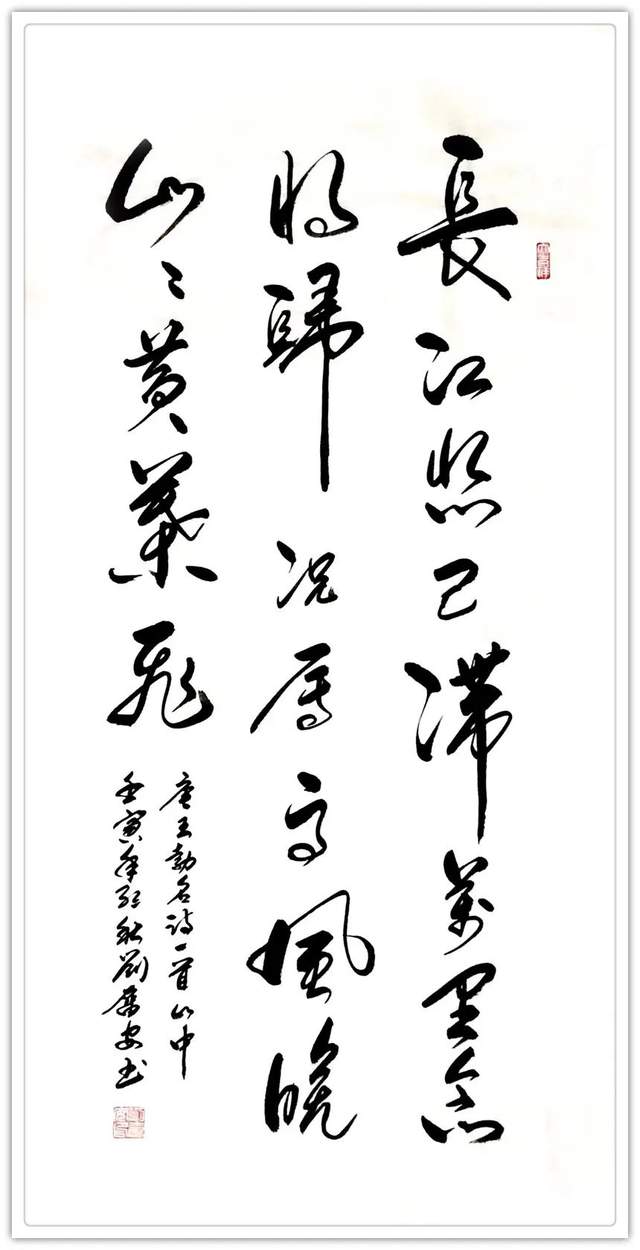 長江悲已滯萬里念
將歸况屬高風晚
山〻黄葉飛
唐王勃名詩一首山中
壬寅年秋劉安书